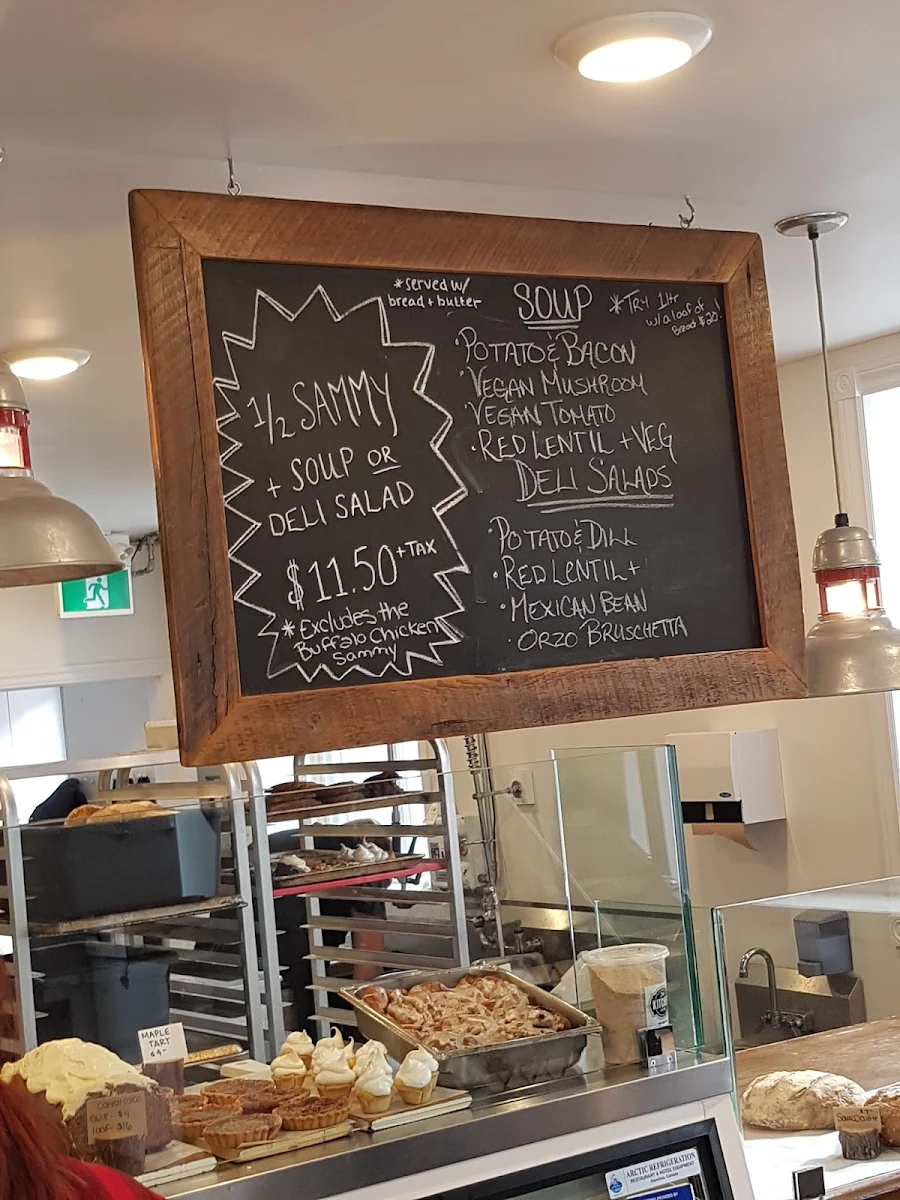 *served w/
bread + butter
1/2 SAMMY
+ SOUP OR
DELI SALAD
$11.50 + TAX
* Excludes the
Buffalo Chicken
Sammy
SOUP
*TRY 1 ltr
w/ a loaf of
Bread $20!
·POTATO & BACON
·VEGAN MUSHROOM
·VEGAN TOMATO
·RED LENTIL + VEG
DELI SALADS
·POTATO & DILL
·RED LENTIL +
·MEXICAN BEAN
·ORZO BRUSCHETTA
MAPLE
TART
$4-
CARROT CAKE
LOAF - $16
SOURDOUGH
ARCTIC REFRIGERATION
RESTAURANT & HOTEL EQUIPMENT